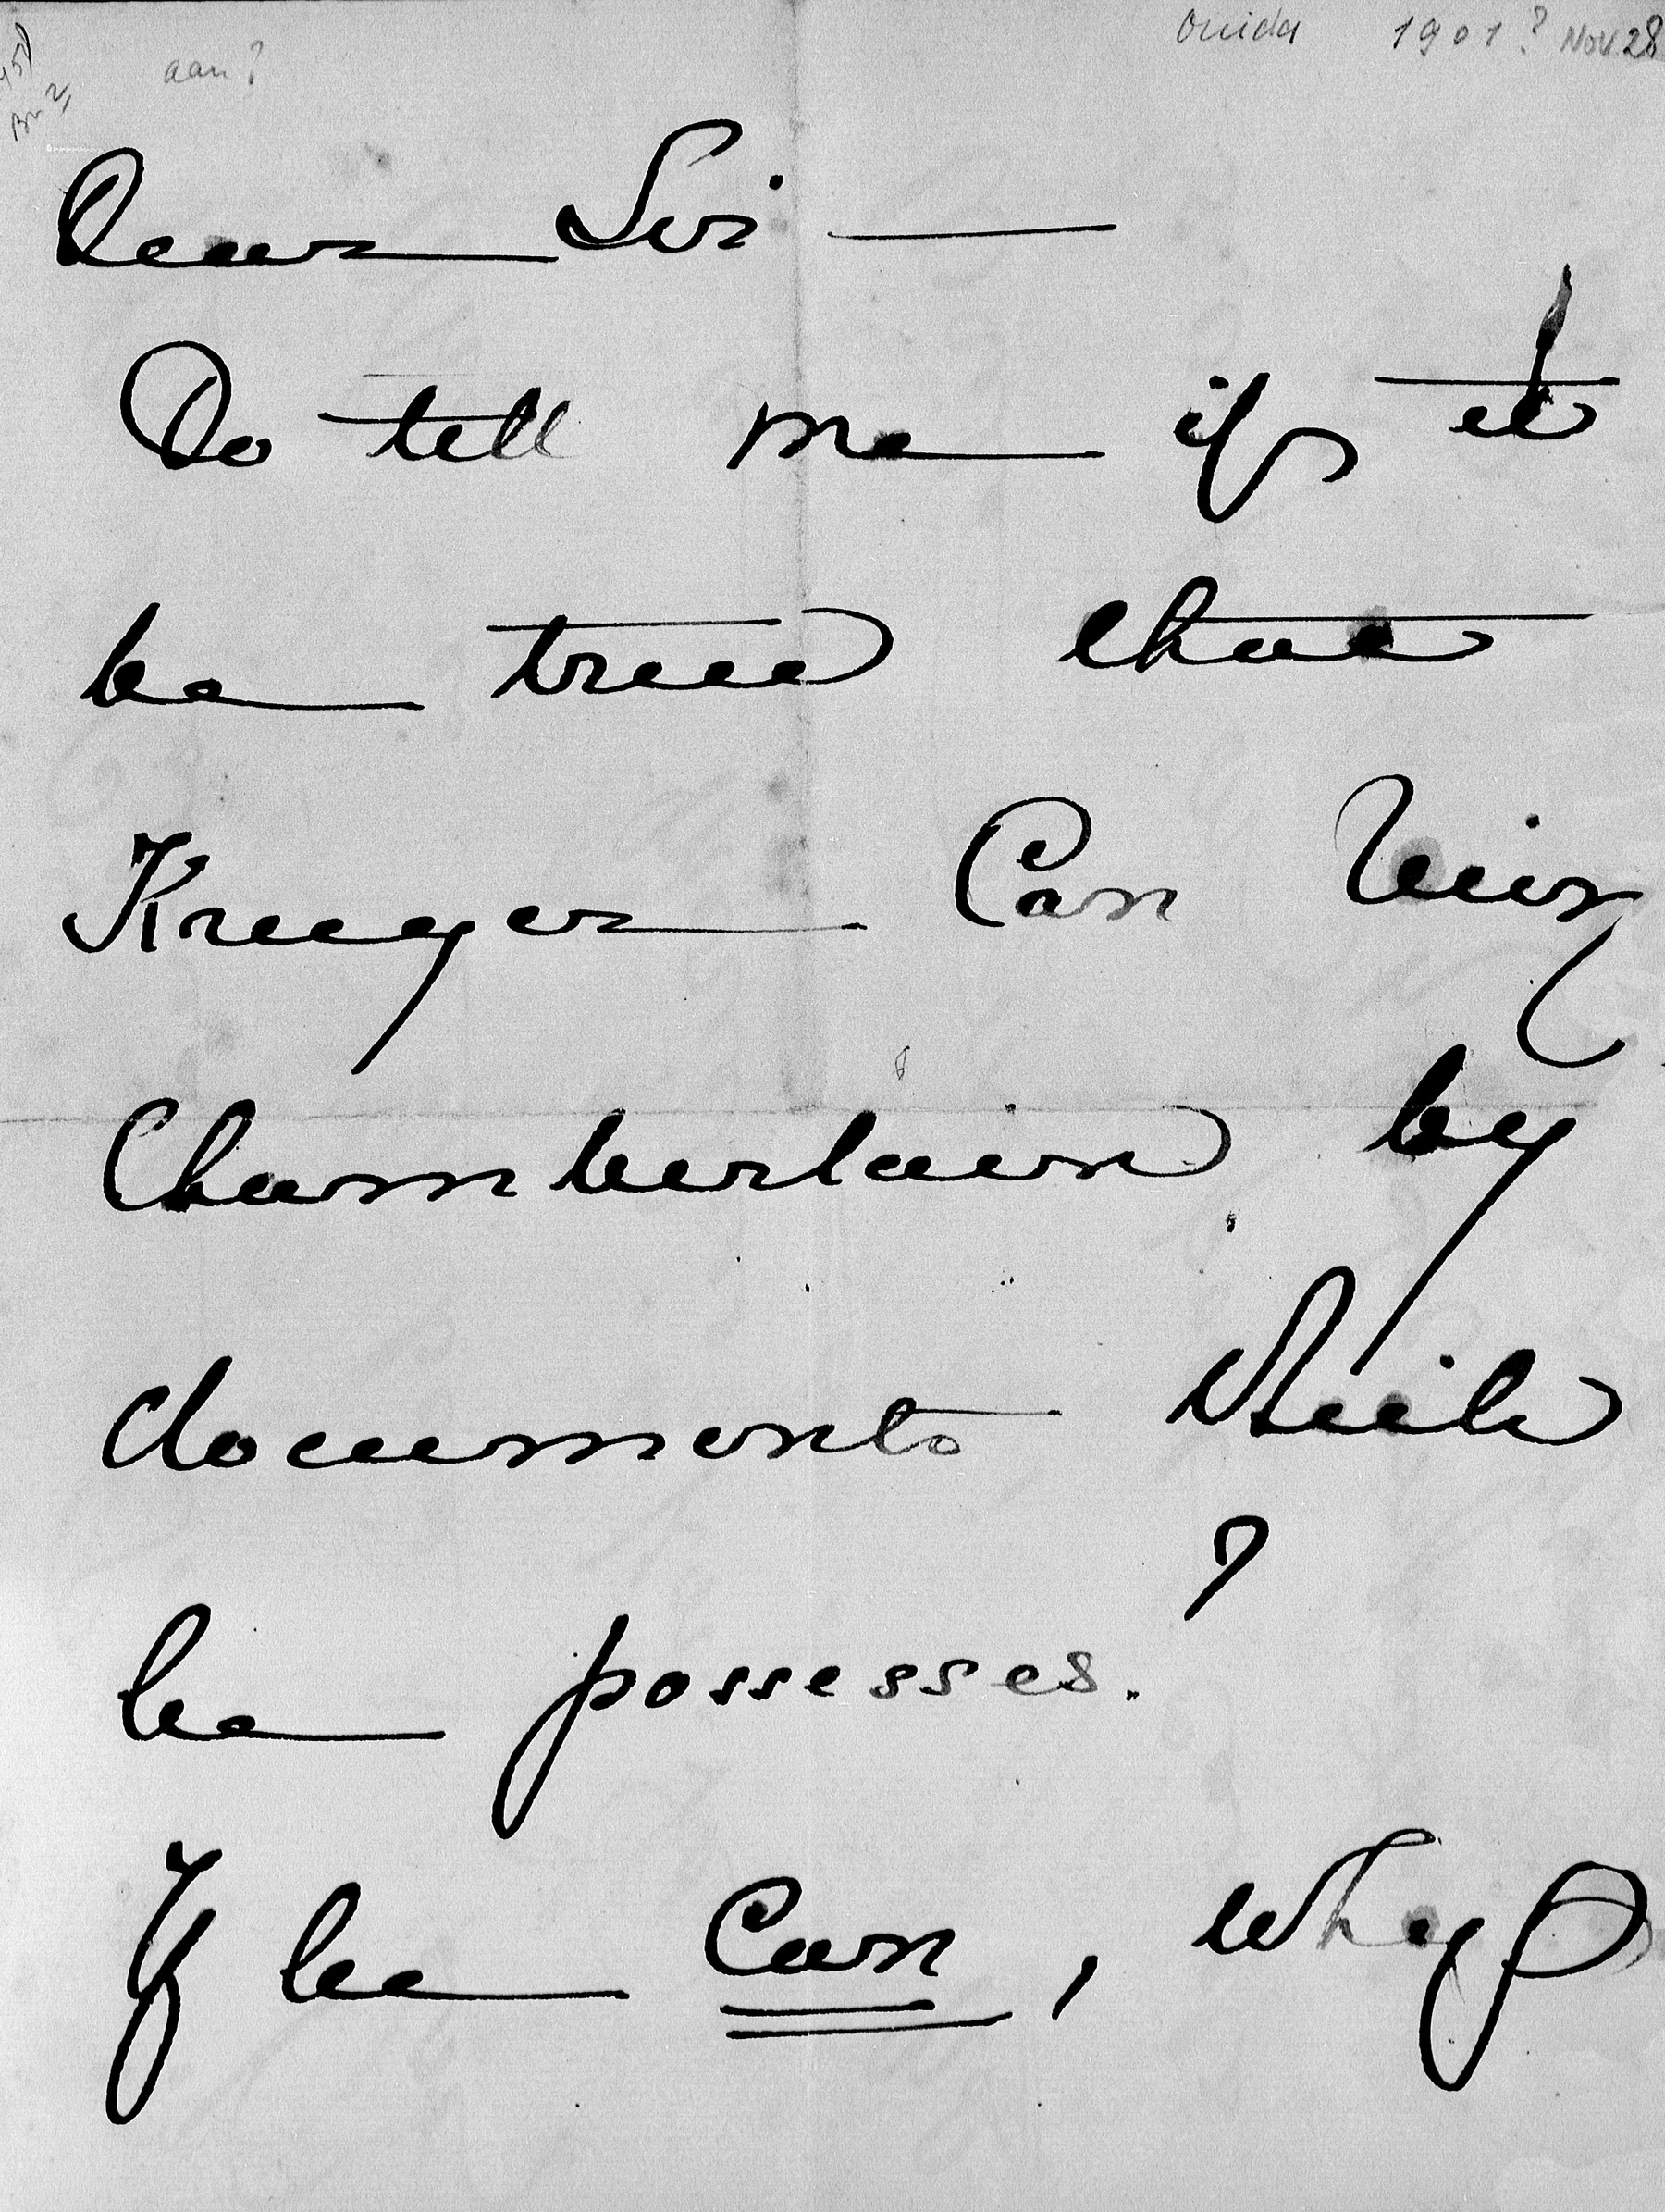 Ouida 1901? Nov 28
aan?
Dear Sir —
Do tell me if it
be true that
Kruger can
Chamberlain by
documents which
he possesses?
If he can, why